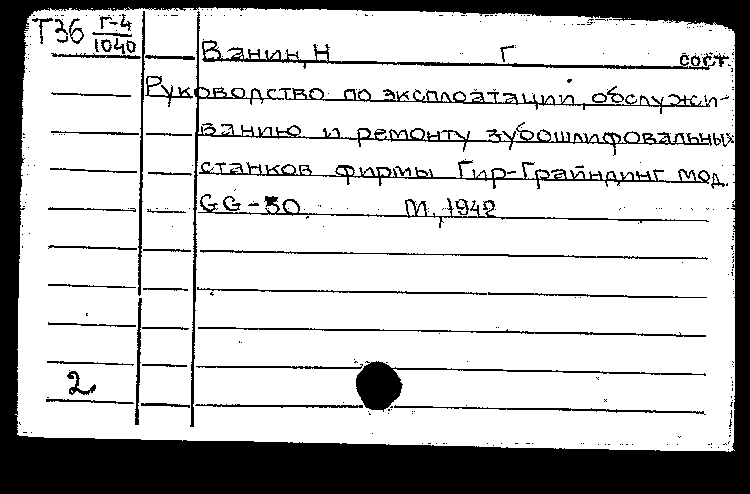 Т36 Г-4
1040
Ванин, Н Г сост.
Руководство по эксплоатации, обслужи-
ванию и ремонту зубошлифовальных
станков фирмы Гир-Грайндинг мод.
GG-30. М., 1942
2